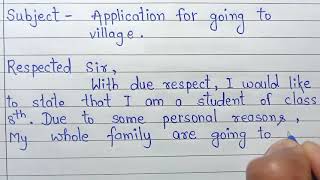 Subject - Application for going to
village.
Respected Sir,
With due respect, I would like
to state that I am a student of class
8th. Due to some personal reasons,
My whole family are going to